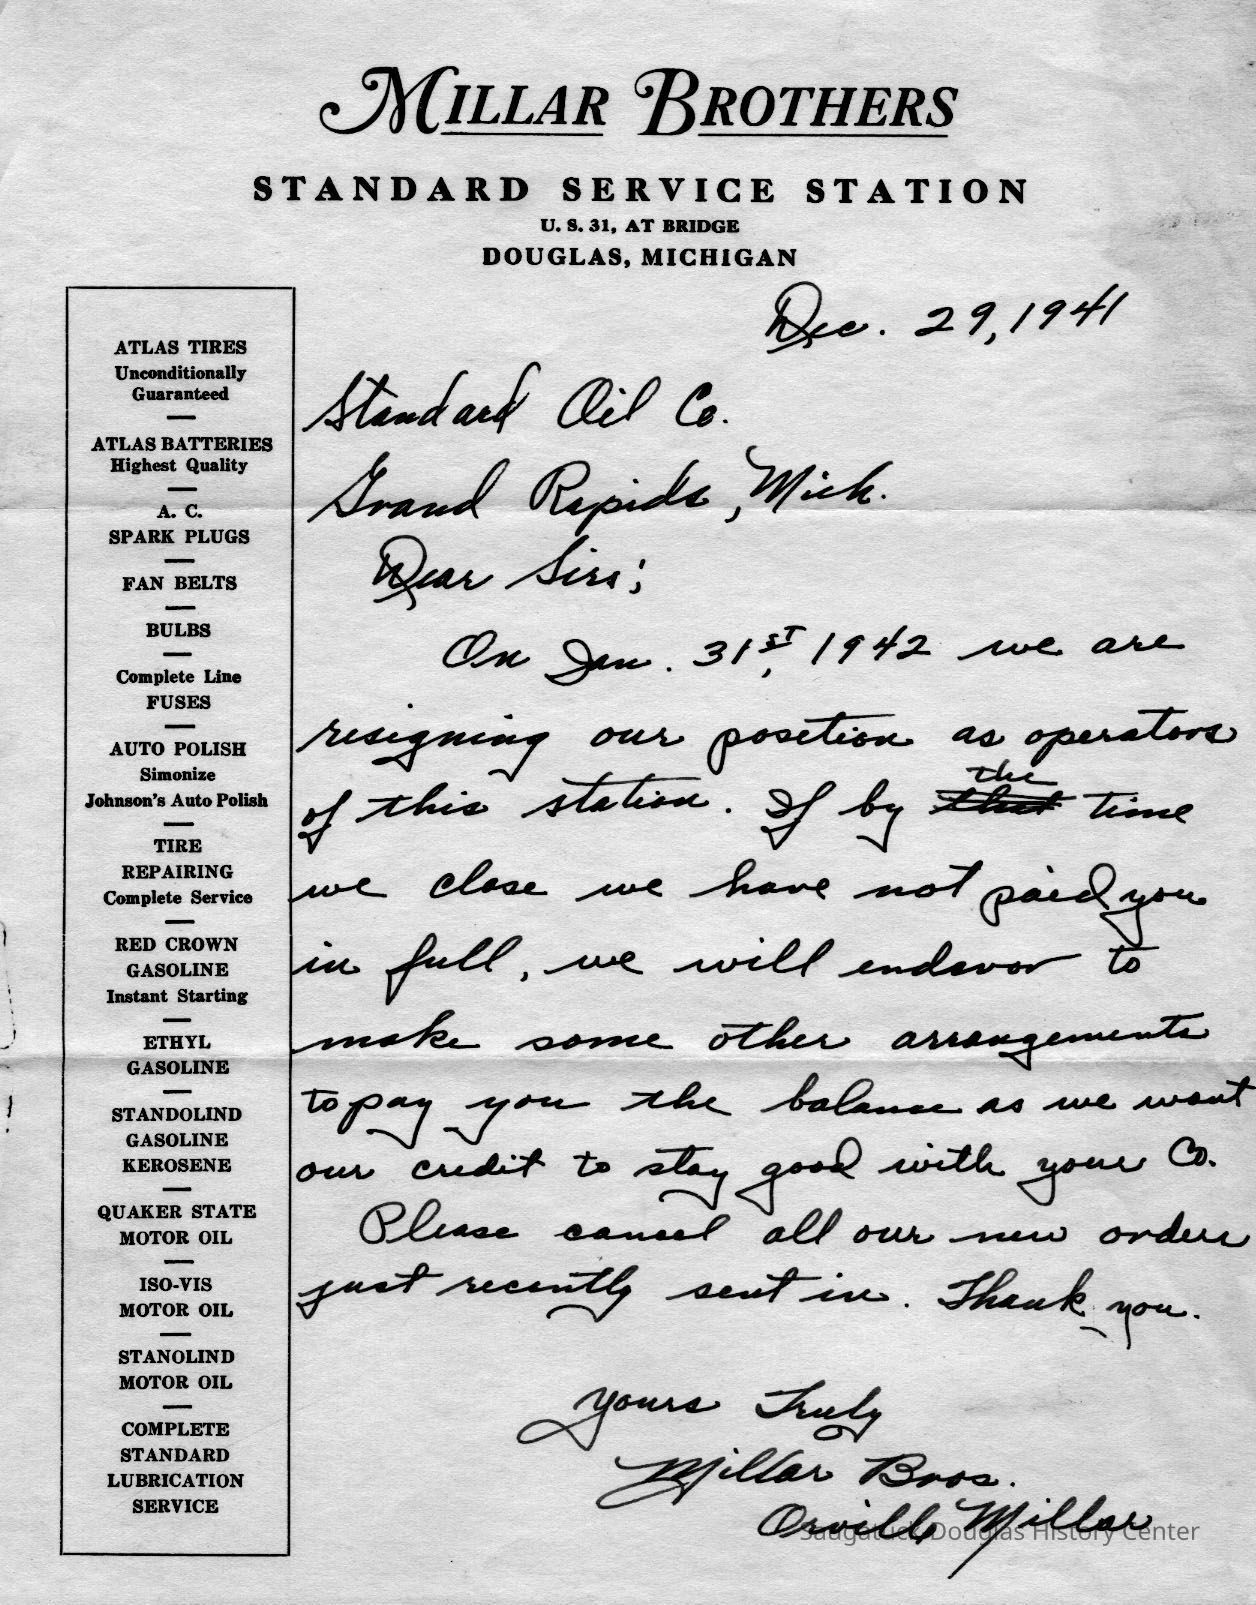 MILLAR BROTHERS
STANDARD SERVICE STATION
U. S. 31, AT BRIDGE
DOUGLAS, MICHIGAN
ATLAS TIRES
Unconditionally
Guaranteed
ATLAS BATTERIES
Highest Quality
A. C.
SPARK PLUGS
FAN BELTS
BULBS
Complete Line
FUSES
AUTO POLISH
Simonize
Johnson's Auto Polish
TIRE
REPAIRING
Complete Service
RED CROWN
GASOLINE
Instant Starting
ETHYL
GASOLINE
STANDOLIND
GASOLINE
KEROSENE
QUAKER STATE
MOTOR OIL
ISO-VIS
MOTOR OIL
STANOLIND
MOTOR OIL
COMPLETE
STANDARD
LUBRICATION
SERVICE
Dec. 29, 1941
Standard Oil Co.
Grand Rapids, Mich.
Dear Sirs;
On Jan. 31ST, 1942 we are
resigning our position as operators
of this station. If by the time
we close we have not paid you
in full, we will endavor to
make some other arrangements
to pay you the balance as we want
our credit to stay good with your Co.
Please cancel all our new orders
just recently sent in. Thank you.
Yours Truly
Millar Bros.
Orville Millar
Saugatuck-Douglas History Center